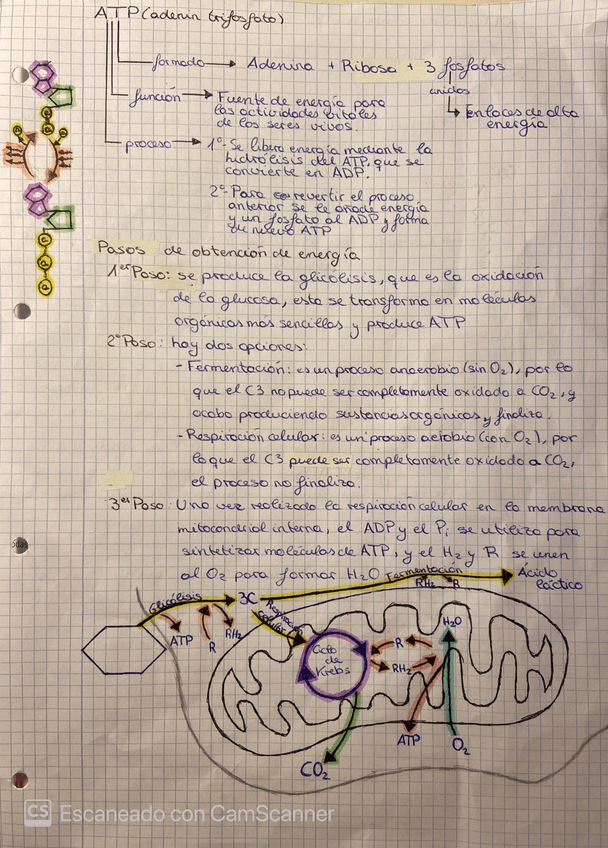 ATP (adenin trifosfato)
formado → Adenina + Ribosa + 3 fosfatos
unidos
Enlaces de alta
energía
función → Fuente de energía para
las actividades vitales
de los seres vivos.
proceso → 1º- Se libera energía mediante la
hidrólisis del ATP, que se
convierte en ADP.
2º- Para revertir el proceso
anterior se le añade energía
y un fosfato al ADP y forma
de nuevo ATP
Pasos de obtención de energía
1er Paso: se produce la glicólisis, que es la oxidación
de la glucosa, esta se transforma en moléculas
orgánicas más sencillas y produce ATP
2º Paso: hay dos opciones:
- Fermentación: es un proceso anaerobio (sin O₂), por lo
que el C3 no puede ser completamente oxidado a CO₂, y
acaba produciendo sustancias orgánicas y finaliza.
- Respiración celular: es un proceso aerobio (con O₂), por
lo que el C3 puede ser completamente oxidado a CO₂,
el proceso no finaliza.
3er Paso: Una vez realizado la respiración celular en la membrana
mitocondrial interna, el ADP y el Pi se utiliza para
sintetizar moléculas de ATP, y el H₂ y R se unen
al O₂ para formar H₂O
Fermentación
Ácido
láctico
RH₂ R
Glicólisis
3C
Respiración
celular
ATP
R
RH₂
Ciclo
de
Krebs
R
RH₂
H₂O
ATP
O₂
CO₂
CS Escaneado con CamScanner